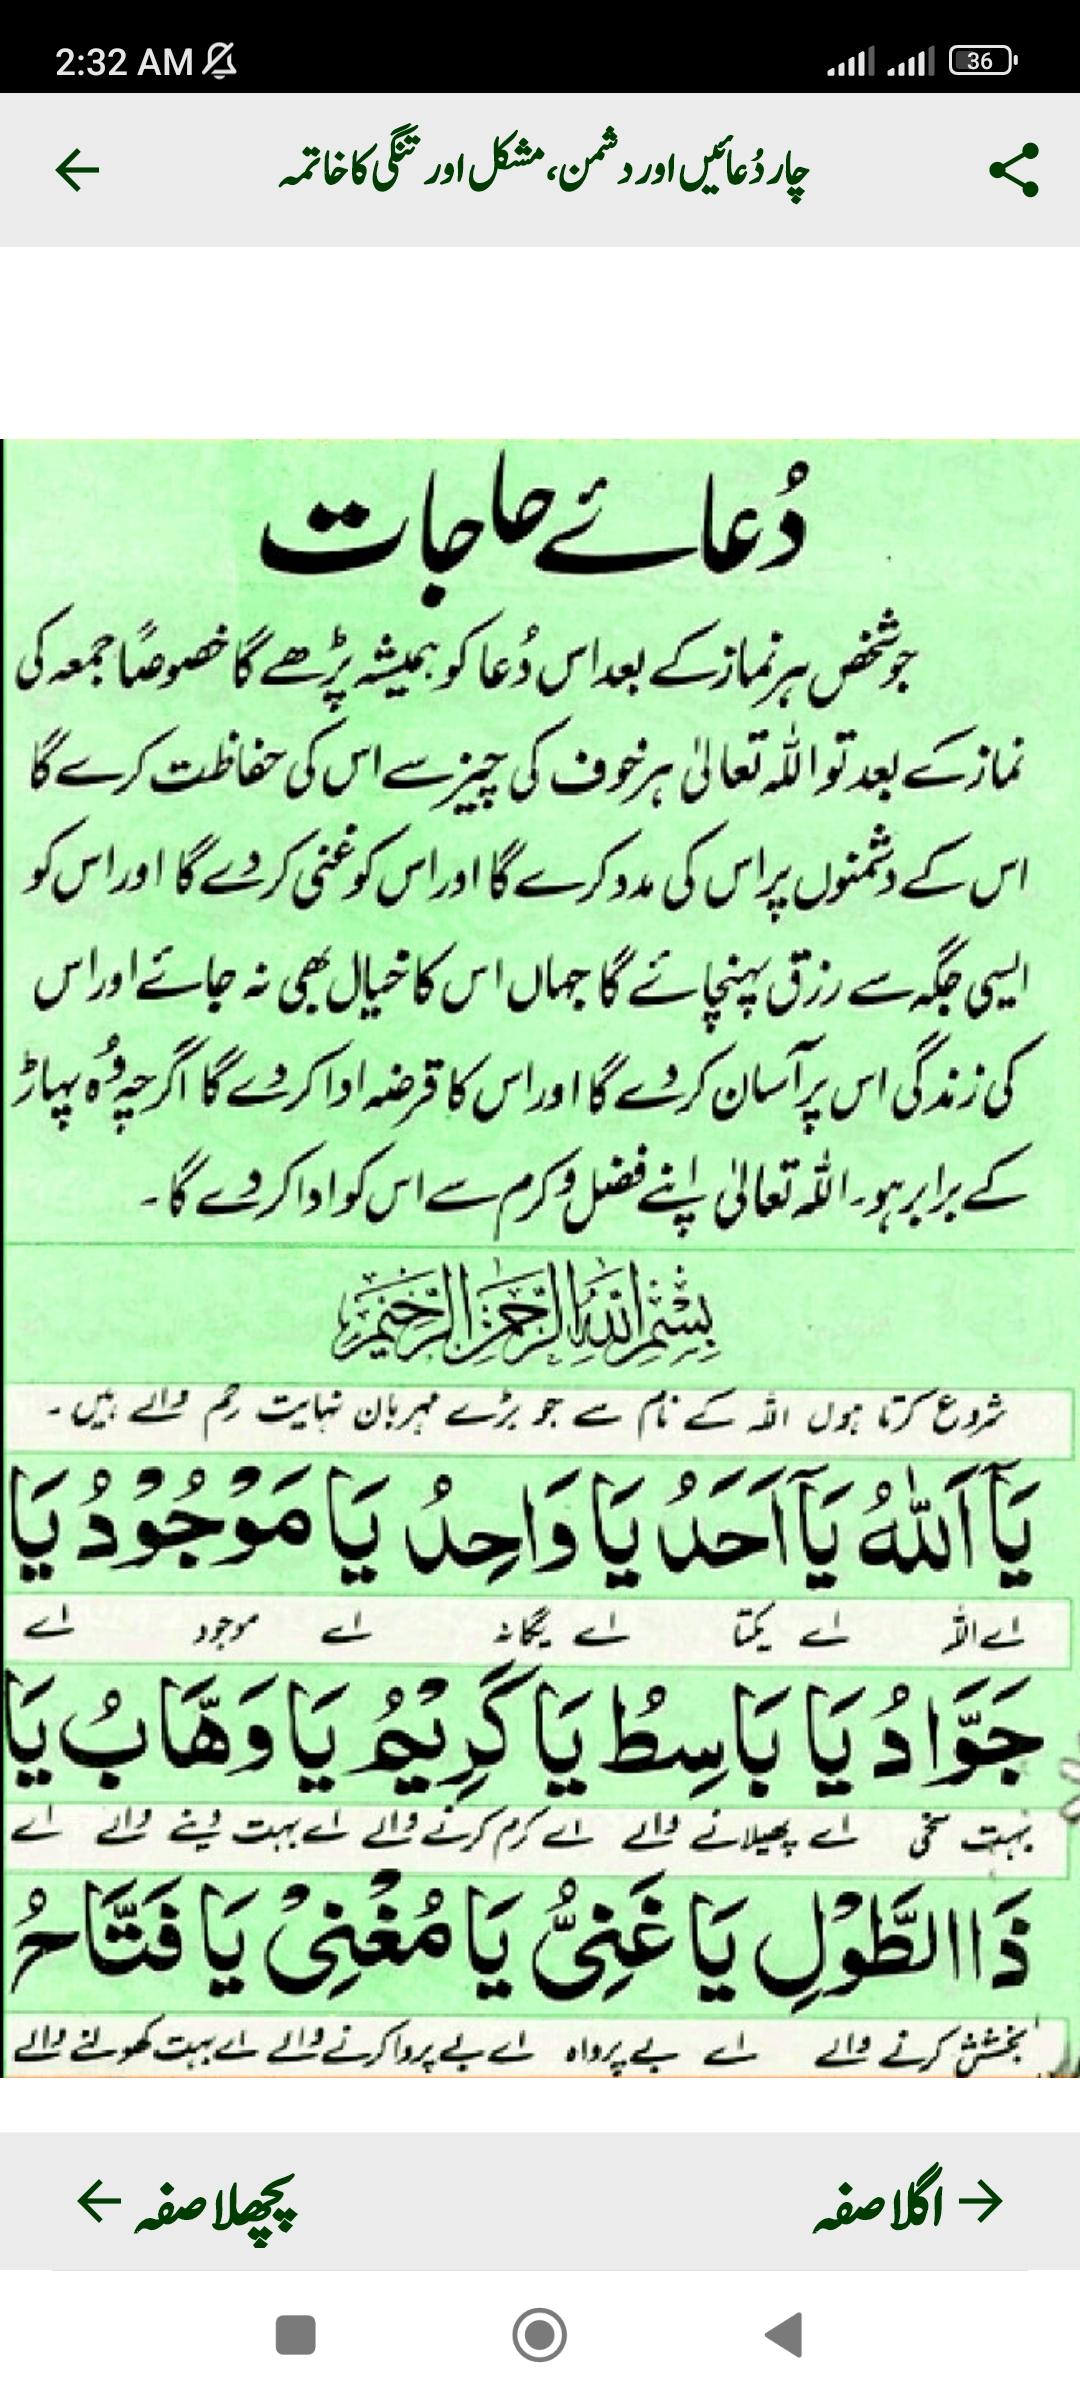 2:32 AM
36
چار دُعائیں اور دشمن، مشکل اور تنگی کا خاتمہ
دُعائے حاجات
جو شخص ہر نماز کے بعد اس دُعا کو ہمیشہ پڑھے گا خصوصاً جمعہ کی
نماز کے بعد تو اللہ تعالیٰ ہر خوف کی چیز سے اس کی حفاظت کرے گا
اس کے دشمنوں پر اس کی مدد کرے گا اور اس کو غنی کر دے گا اور اس کو
ایسی جگہ سے رزق پہنچائے گا جہاں اس کا خیال بھی نہ جائے اور اس
کی زندگی اس پر آسان کر دے گا اور اس کا قرضہ ادا کر دے گا اگرچہ وُہ پہاڑ
کے برابر ہو۔ اللہ تعالیٰ اپنے فضل و کرم سے اس کو ادا کر دے گا۔
بِسْمِ اللهِ الرَّحْمٰنِ الرَّحِيْمِ
شروع کرتا ہوں اللہ کے نام سے جو بڑے مہربان نہایت رحم والے ہیں۔
يَآ اَللّٰهُ يَآ اَحَدُ يَا وَاحِدُ يَا مَوْجُوْدُ يَا
اے اللہ اے یکتا اے یگانہ اے موجود اے
جَوَّادُ يَا بَاسِطُ يَا كَرِيْمُ يَا وَهَّابُ يَا
بہت سخی اے پھیلانے والے اے کرم کرنے والے اے بہت دینے والے اے
ذَا الطَّوْلِ يَا غَنِيُّ يَا مُغْنِيْ يَا فَتَّاحُ
بخشش کرنے والے اے بے پرواہ اے بے پروا کرنے والے اے بہت کھولنے والے
اگلا صفہ
پچھلا صفہ